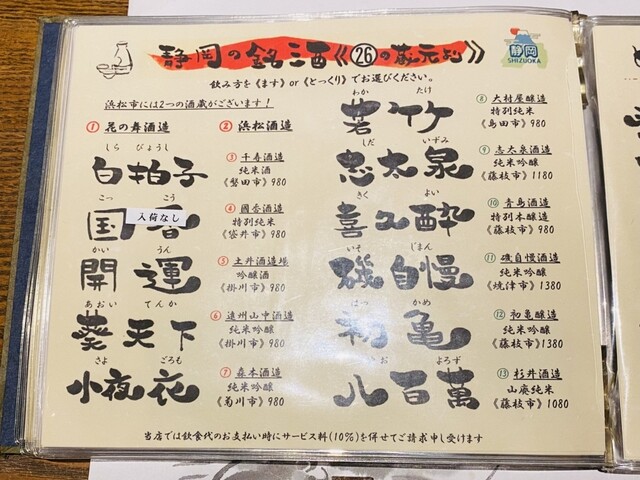 静岡の銘酒《26の蔵元より》
静岡
SHIZUOKA
飲み方を《ます》or《とっくり》でお選びください。
浜松市には2つの酒蔵がございます！
① 花の舞酒造
② 浜松酒造
しら びょうし
白拍子
③ 千寿酒造
純米酒
《磐田市》980
こっ こう
国香
入荷なし
④ 國香酒造
特別純米
《袋井市》980
かい うん
開運
⑤ 土井酒造場
吟醸酒
《掛川市》980
あおい てんか
葵天下
⑥ 遠州山中酒造
純米吟醸
《掛川市》980
さよ ごろも
小夜衣
⑦ 森本酒造
純米吟醸
《菊川市》980
わか たけ
若竹
⑧ 大村屋醸造
特別純米
《島田市》980
しだ いずみ
志太泉
⑨ 志太泉酒造
純米吟醸
《藤枝市》1180
きく よい
喜久酔
⑩ 青島酒造
特別本醸造
《藤枝市》980
いそ じまん
磯自慢
⑪ 磯自慢酒造
純米吟醸
《焼津市》1380
はつ かめ
初亀
⑫ 初亀醸造
純米吟醸
《藤枝市》1380
お よろず
八百萬
⑬ 杉井酒造
山廃純米
《藤枝市》1080
当店では飲食代のお支払い時にサービス料(10%)を併せてご請求申し受けます